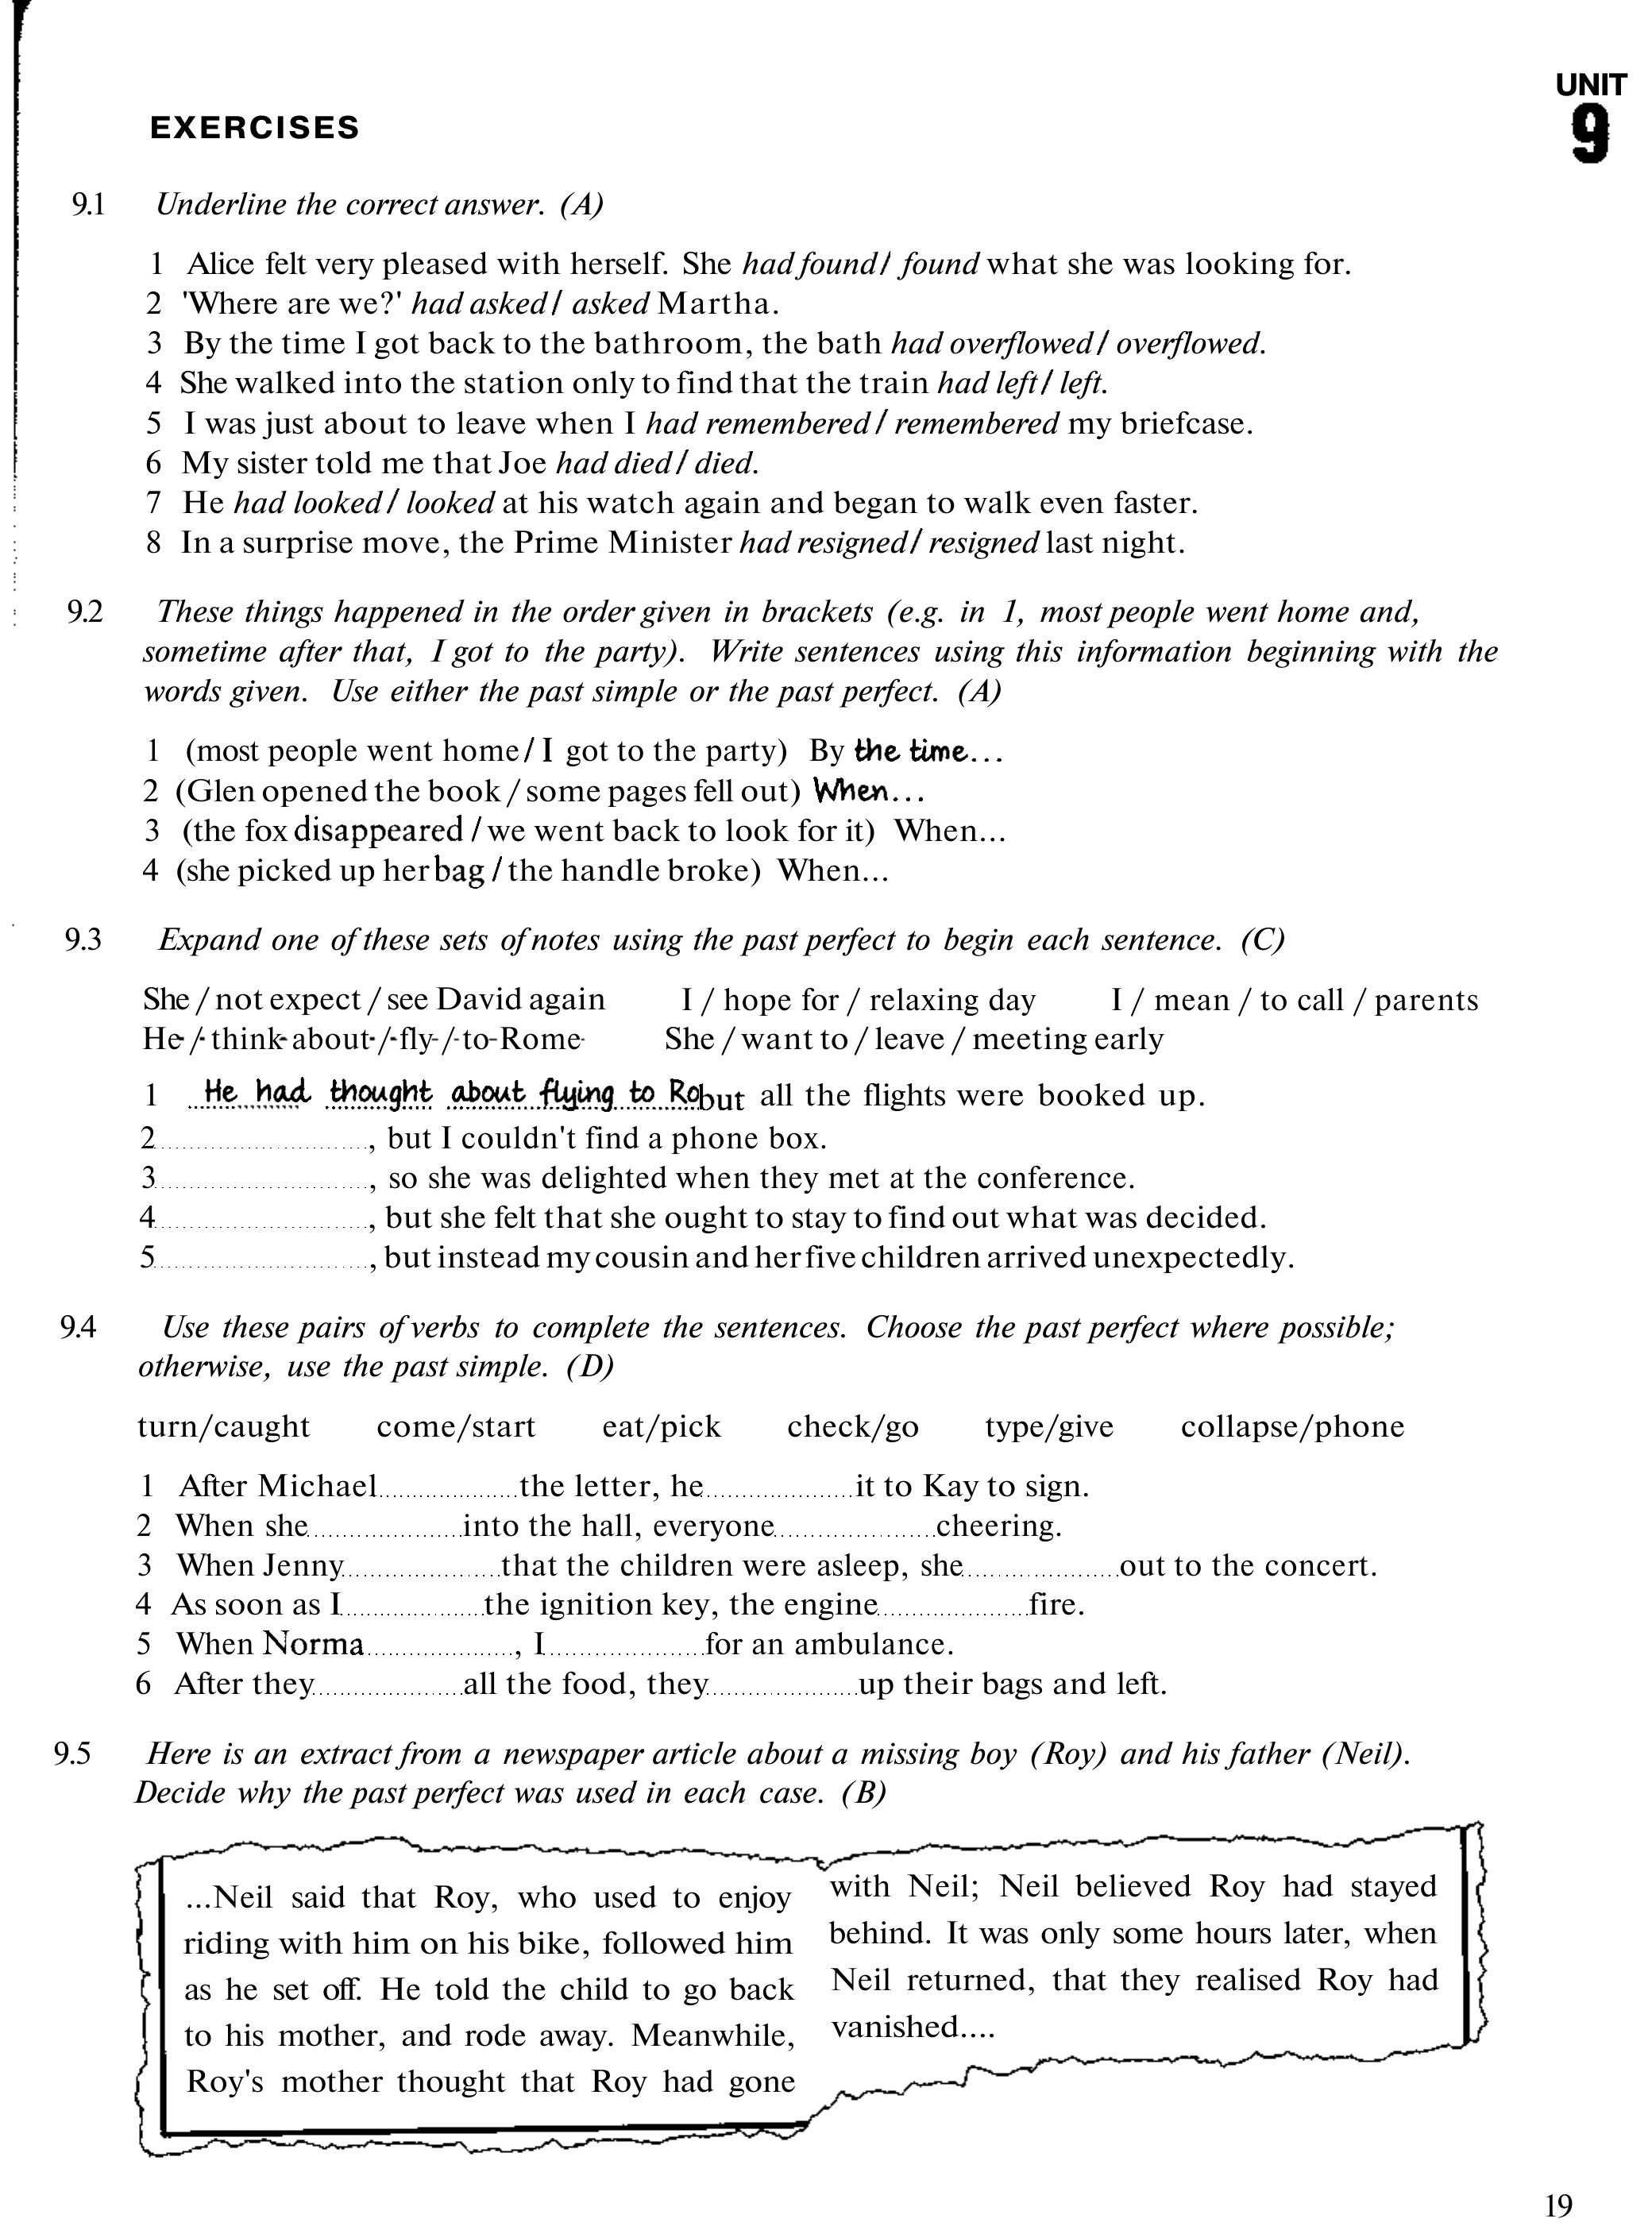 UNIT
9
EXERCISES
9.1 Underline the correct answer. (A)
1 Alice felt very pleased with herself. She had found / found what she was looking for.
2 'Where are we?' had asked / asked Martha.
3 By the time I got back to the bathroom, the bath had overflowed / overflowed.
4 She walked into the station only to find that the train had left / left.
5 I was just about to leave when I had remembered / remembered my briefcase.
6 My sister told me that Joe had died / died.
7 He had looked / looked at his watch again and began to walk even faster.
8 In a surprise move, the Prime Minister had resigned / resigned last night.
9.2 These things happened in the order given in brackets (e.g. in 1, most people went home and,
sometime after that, I got to the party). Write sentences using this information beginning with the
words given. Use either the past simple or the past perfect. (A)
1 (most people went home / I got to the party) By the time...
2 (Glen opened the book / some pages fell out) When...
3 (the fox disappeared / we went back to look for it) When...
4 (she picked up her bag / the handle broke) When...
9.3 Expand one of these sets of notes using the past perfect to begin each sentence. (C)
She / not expect / see David again I / hope for / relaxing day I / mean / to call / parents
He / think about / fly / to Rome She / want to / leave / meeting early
1 He had thought about flying to Ro but all the flights were booked up.
2 ...................., but I couldn't find a phone box.
3 ...................., so she was delighted when they met at the conference.
4 ...................., but she felt that she ought to stay to find out what was decided.
5 ...................., but instead my cousin and her five children arrived unexpectedly.
9.4 Use these pairs of verbs to complete the sentences. Choose the past perfect where possible;
otherwise, use the past simple. (D)
turn/caught come/start eat/pick check/go type/give collapse/phone
1 After Michael .................... the letter, he .................... it to Kay to sign.
2 When she .................... into the hall, everyone .................... cheering.
3 When Jenny .................... that the children were asleep, she .................... out to the concert.
4 As soon as I .................... the ignition key, the engine .................... fire.
5 When Norma ...................., I .................... for an ambulance.
6 After they .................... all the food, they .................... up their bags and left.
9.5 Here is an extract from a newspaper article about a missing boy (Roy) and his father (Neil).
Decide why the past perfect was used in each case. (B)
...Neil said that Roy, who used to enjoy
riding with him on his bike, followed him
as he set off. He told the child to go back
to his mother, and rode away. Meanwhile,
Roy's mother thought that Roy had gone
with Neil; Neil believed Roy had stayed
behind. It was only some hours later, when
Neil returned, that they realised Roy had
vanished....
19